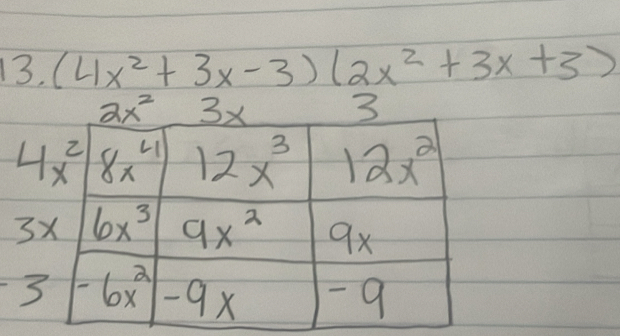 13. (4x² + 3x - 3) (2x² + 3x + 3)
2x² 3x 3
4x² 8x⁴ 12x³ 12x²
3x 6x³ 9x² 9x
-3 -6x² -9x -9